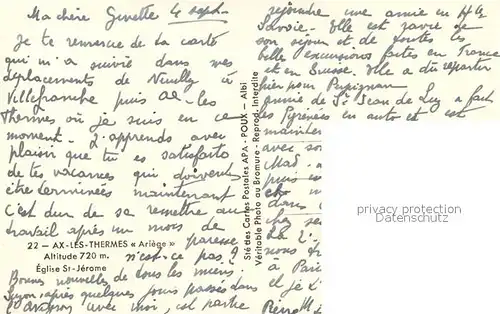 Ma chère Ginette 4 sept.
Je te remercie de ta carte
qui m'a suivie dans mes
déplacements de Neuilly à
Villefranche puis Ax-les
Thermes où je suis en ce
moment - J'apprends avec
plaisir que tu es satisfaite
de tes vacances qui doivent
être terminées maintenant
C'est dur de se remettre au
travail après un mois de
paresse
n'est-ce pas ?
Bonnes nouvelles de tous les miens.
après quelques jours passés dans
avec moi, est partie
22 — AX-LES-THERMES « Ariège »
Altitude 720 m.
Église St-Jérome
Sté des Cartes Postales APA - POUX - Albi
Véritable Photo au Bromure - Reprod. Interdite
rejoindre une amie en Hte
Savoie - Elle est ravie de
son séjour et de toutes les
belles excursions faites en France
et en Suisse. Elle a dû repartir
hier pour Perpignan
amie de St Jean de Luz a fait
les Pyrénées en auto et est
mainten
avec so
Mad.
puis e
ch
dan
chez se
La
nous
à Paris
et je
Pierre
privacy protection
Datenschutz